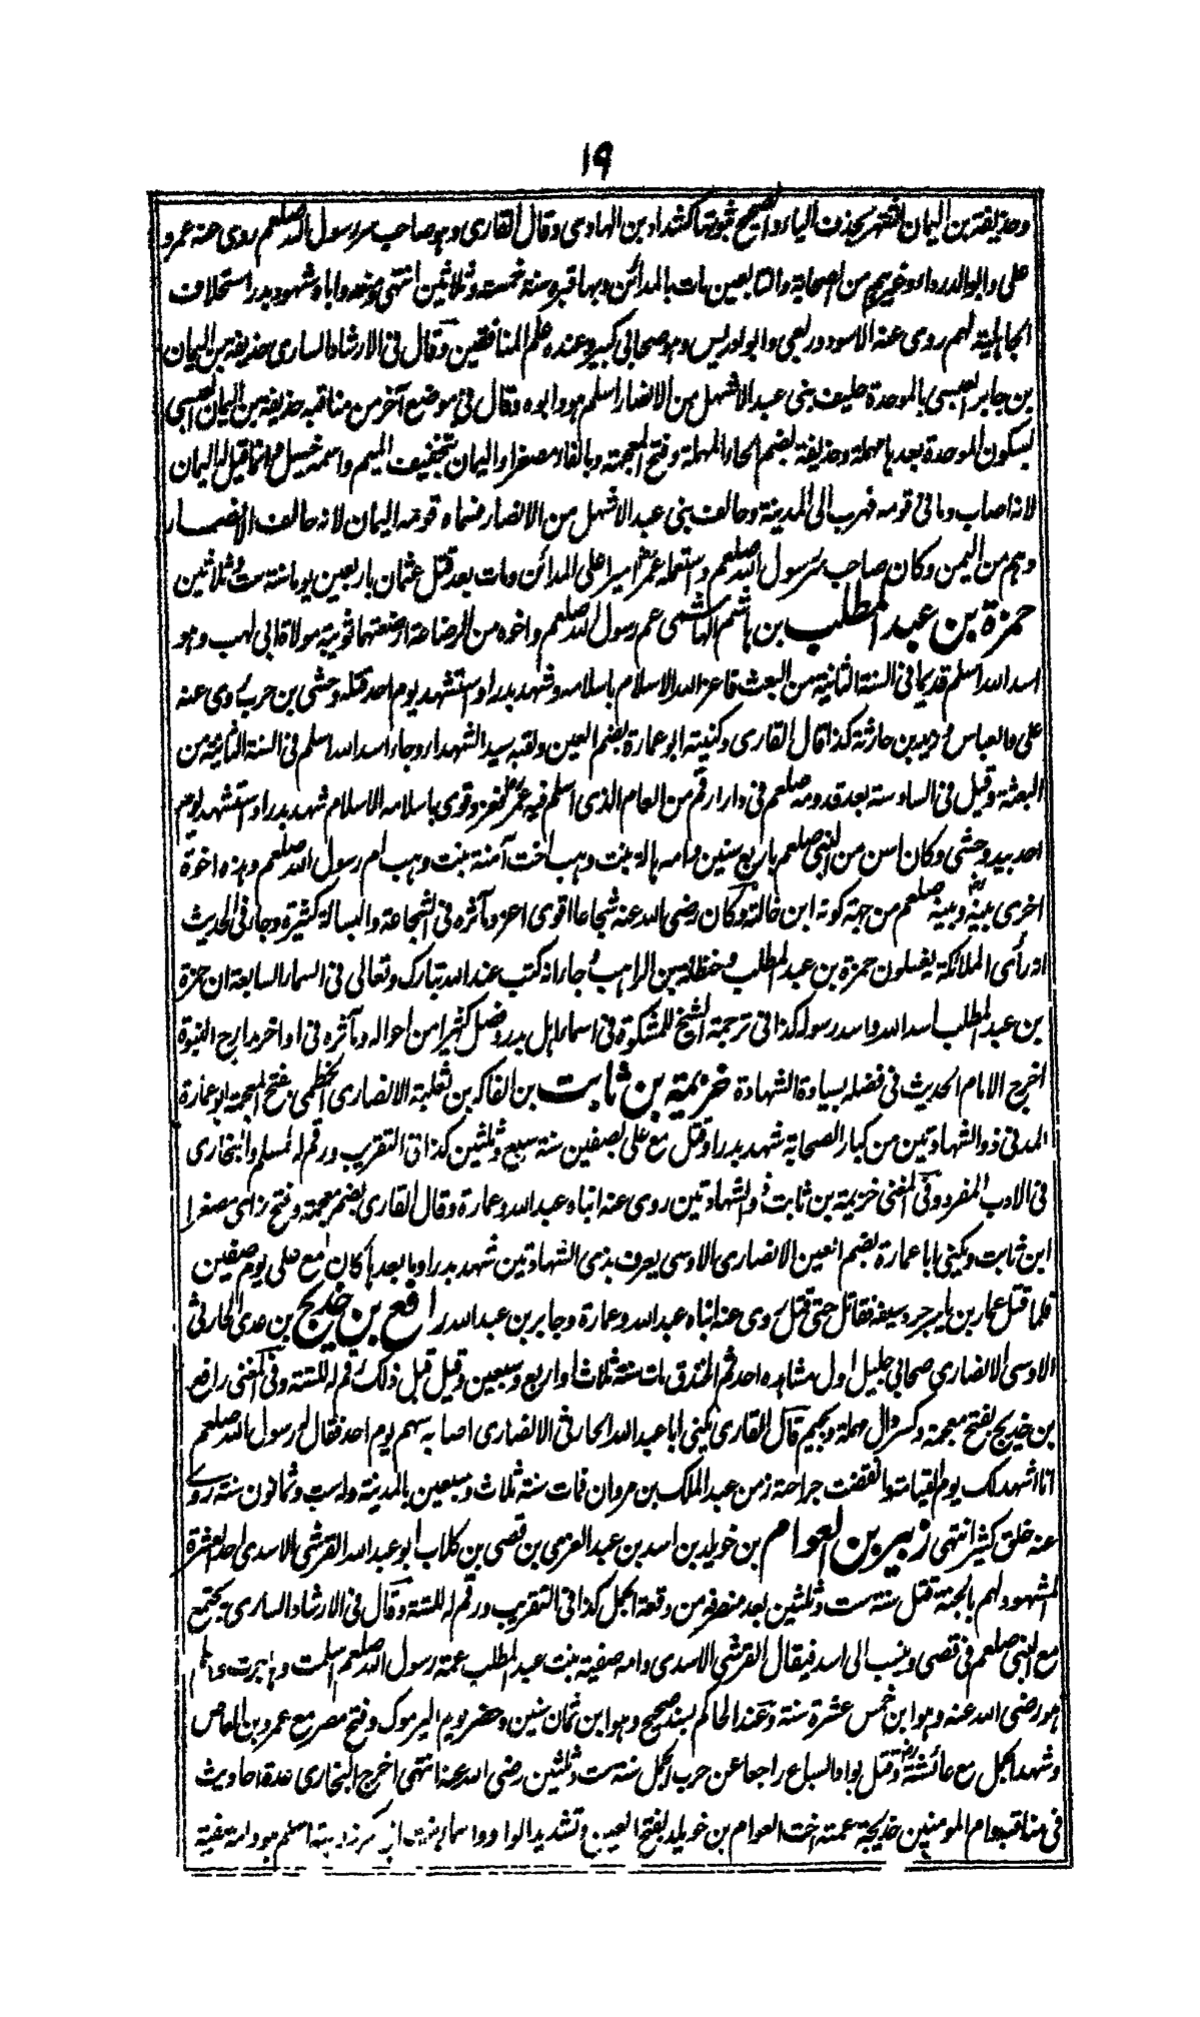 ١٩
وحذيفة بن اليمان اشتهر بحذف الياء والصحيح ثبوتها كشداد بن الهادى وقال القارى وهو صاحب سر رسول الله صلعم روى عنه عمر و
على وابو الدرداء وغيرهم من الصحابة والتابعين مات بالمدائن وبها قبره سنة خمسة وثلاثين انتهى ومنعه واباه شهود بدر استحلاف
الجاهلية لهم روى عنه الاسود وربعى وابو ادريس وهو صحابى كبير وعنده علم المنافقين وقال فى الارشاد السارى حذيفة بن اليمان
بن جابر العبسى بالموحدة حليف بنى عبد الاشهل من الانصار اسلم هو وابوه وقال فى موضع آخر من مناقبه حذيفة بن اليمان العبسى
بسكون الموحدة بعدها مهملة وحذيفة بضم الحاء المهملة وفتح المعجمة وبالفاء مصغرا واليمان بتخفيف الميم واسمه حسيل وانما قيل له اليمان
لانه اصاب دما فى قومه فهرب الى المدينة وحالف بنى عبد الاشهل من الانصار فسماه قومه اليمان لانه حالف الانصار
وهم من اليمن وكان صاحب سر رسول الله صلعم واستعمله عمر اميرا على المدائن ومات بعد قتل عثمان باربعين يوما سنة ست وثلاثين
حمزة بن عبد المطلب بن هاشم الهاشمى عم رسول الله صلعم واخوه من الرضاعة ارضعتهما ثويبة مولاة ابى لهب وهو
اسد الله اسلم قديما فى السنة الثانية من البعث فاعز الله الاسلام باسلامه وشهد بدرا واستشهد يوم احد قتله وحشى بن حرب روى عنه
على والعباس وزيد بن حارثة كذا قال القارى وكنيته ابو عمارة بضم العين ولقبه سيد الشهداء وجاء اسد الله اسلم فى السنة الثانية من
البعثة وقيل فى السادسة بعد قدومه صلعم فى دار ارقم من العام الذى اسلم فيه عمر فعز وقوى باسلامه الاسلام شهد بدرا واستشهد يوم
احد بيد وحشى وكان اسن من النبى صلعم باربع سنين وامه هالة بنت وهب اخت آمنة بنت وهب ام رسول الله صلعم وهذه اخوة
اخرى بينه وبينه صلعم من جهة كونه ابن خالته وكان رضى الله عنه شجاعا اقوى اعز ومآثره فى الشجاعة والبسالة كثيرة وجاء فى الحديث
انه رأى الملائكة يغسلون حمزة بن عبد المطلب وحنظلة بن الراهب وجاء انه كتب عند الله تبارك وتعالى فى السماء السابعة ان حمزة
بن عبد المطلب اسد الله واسد رسوله كذا فى ترجمة الشيخ للمشكوة فى اسماء اهل بدر وفصل كثيرا من احواله ومآثره فى اواخر مدارج النبوة
اخرج الامام الحديث فى فضله بسيادة الشهادة خزيمة بن ثابت بن الفاكه بن ثعلبة الانصارى الخطمى بفتح المعجمة ابو عمارة
المدنى ذو الشهادتين من كبار الصحابة شهد بدرا وقتل مع على بصفين سنة سبع وثلثين كذا فى التقريب ورقم له لمسلم والبخارى
فى الادب المفرد وفى المغنى خزيمة بن ثابت ذو الشهادتين روى عنه ابناه عبد الله وعمارة وقال القارى بضم معجمة وفتح زاى مصغرا
ابن ثابت ويكنى ابا عمارة بضم العين الانصارى الاوسى يعرف بذى الشهادتين شهد بدرا وما بعدها كان مع على يوم صفين
فلما قتل عمار بن ياسر جرد سيفه فقاتل حتى قتل روى عنه ابناه عبد الله وعمارة وجابر بن عبد الله رافع بن خديج بن عدى الحارثى
الاوسى الانصارى صحابى جليل اول مشاهده احد ثم الخندق مات سنة ثلاث او اربع وسبعين وقيل قبل ذلك رقم له للستة وفى المغنى رافع
بن خديج بفتح معجمة وكسر دال مهملة وبجيم قال القارى يكنى ابا عبد الله الحارثى الانصارى اصابه سهم يوم احد فقال له رسول الله صلعم
انا اشهد لك يوم القيامة وانتقضت جراحة زمن عبد الملك بن مروان فمات سنة ثلاث وسبعين بالمدينة وله ست وثمانون سنة روى
عنه خلق كثير انتهى زبير بن العوام بن خويلد بن اسد بن عبد العزى بن قصى بن كلاب ابو عبد الله القرشى الاسدى احد العشرة
المشهود لهم بالجنة قتل سنة ست وثلثين بعد منصرفه من وقعة الجمل كذا فى التقريب ورقم له للستة وقال فى الارشاد السارى يجتمع
مع النبى صلعم فى قصى وينسب الى اسد فيقال القرشى الاسدى وامه صفية بنت عبد المطلب عمة رسول الله صلعم اسلمت وهاجرت واسلم
هو رضى الله عنه وهو ابن خمس عشرة سنة وعند الحاكم بسند صحيح وهو ابن ثمان سنين وحضر يوم اليرموك وفتح مصر مع عمرو بن العاص
وشهد الجمل مع عائشة وقتل بوادى السباع راجعا عن حرب الجمل سنة ست وثلثين رضى الله عنه انتهى اخرج البخارى عدة احاديث
فى مناقبه وام المومنين خديجة عمته اخت العوام بن خويلد بفتح العين وتشديد الواو واسماء بنت ابى بكر زوجته اسلم هو وامه صفية